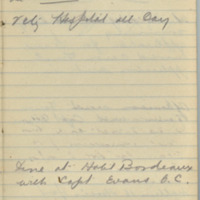 Vety Hospital all day
Dine at Hotel Bordeaux
with Capt Evans O.C.